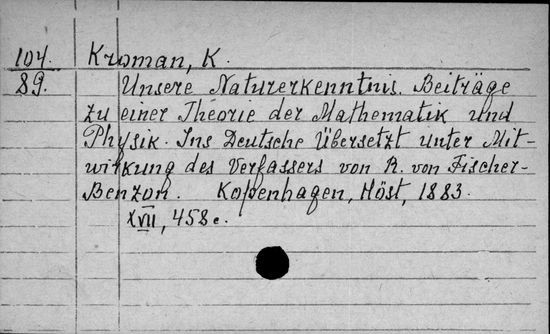 104. Kroman, K.
89. Unsere Naturerkenntnis. Beiträge
zu einer Theorie der Mathematik und
Physik. Ins Deutsche Übersetzt unter Mit-
wirkung des Verfassers von R. von Fischer-
Benzon. Kopenhagen, Höst, 1883.
XVII, 458 c.